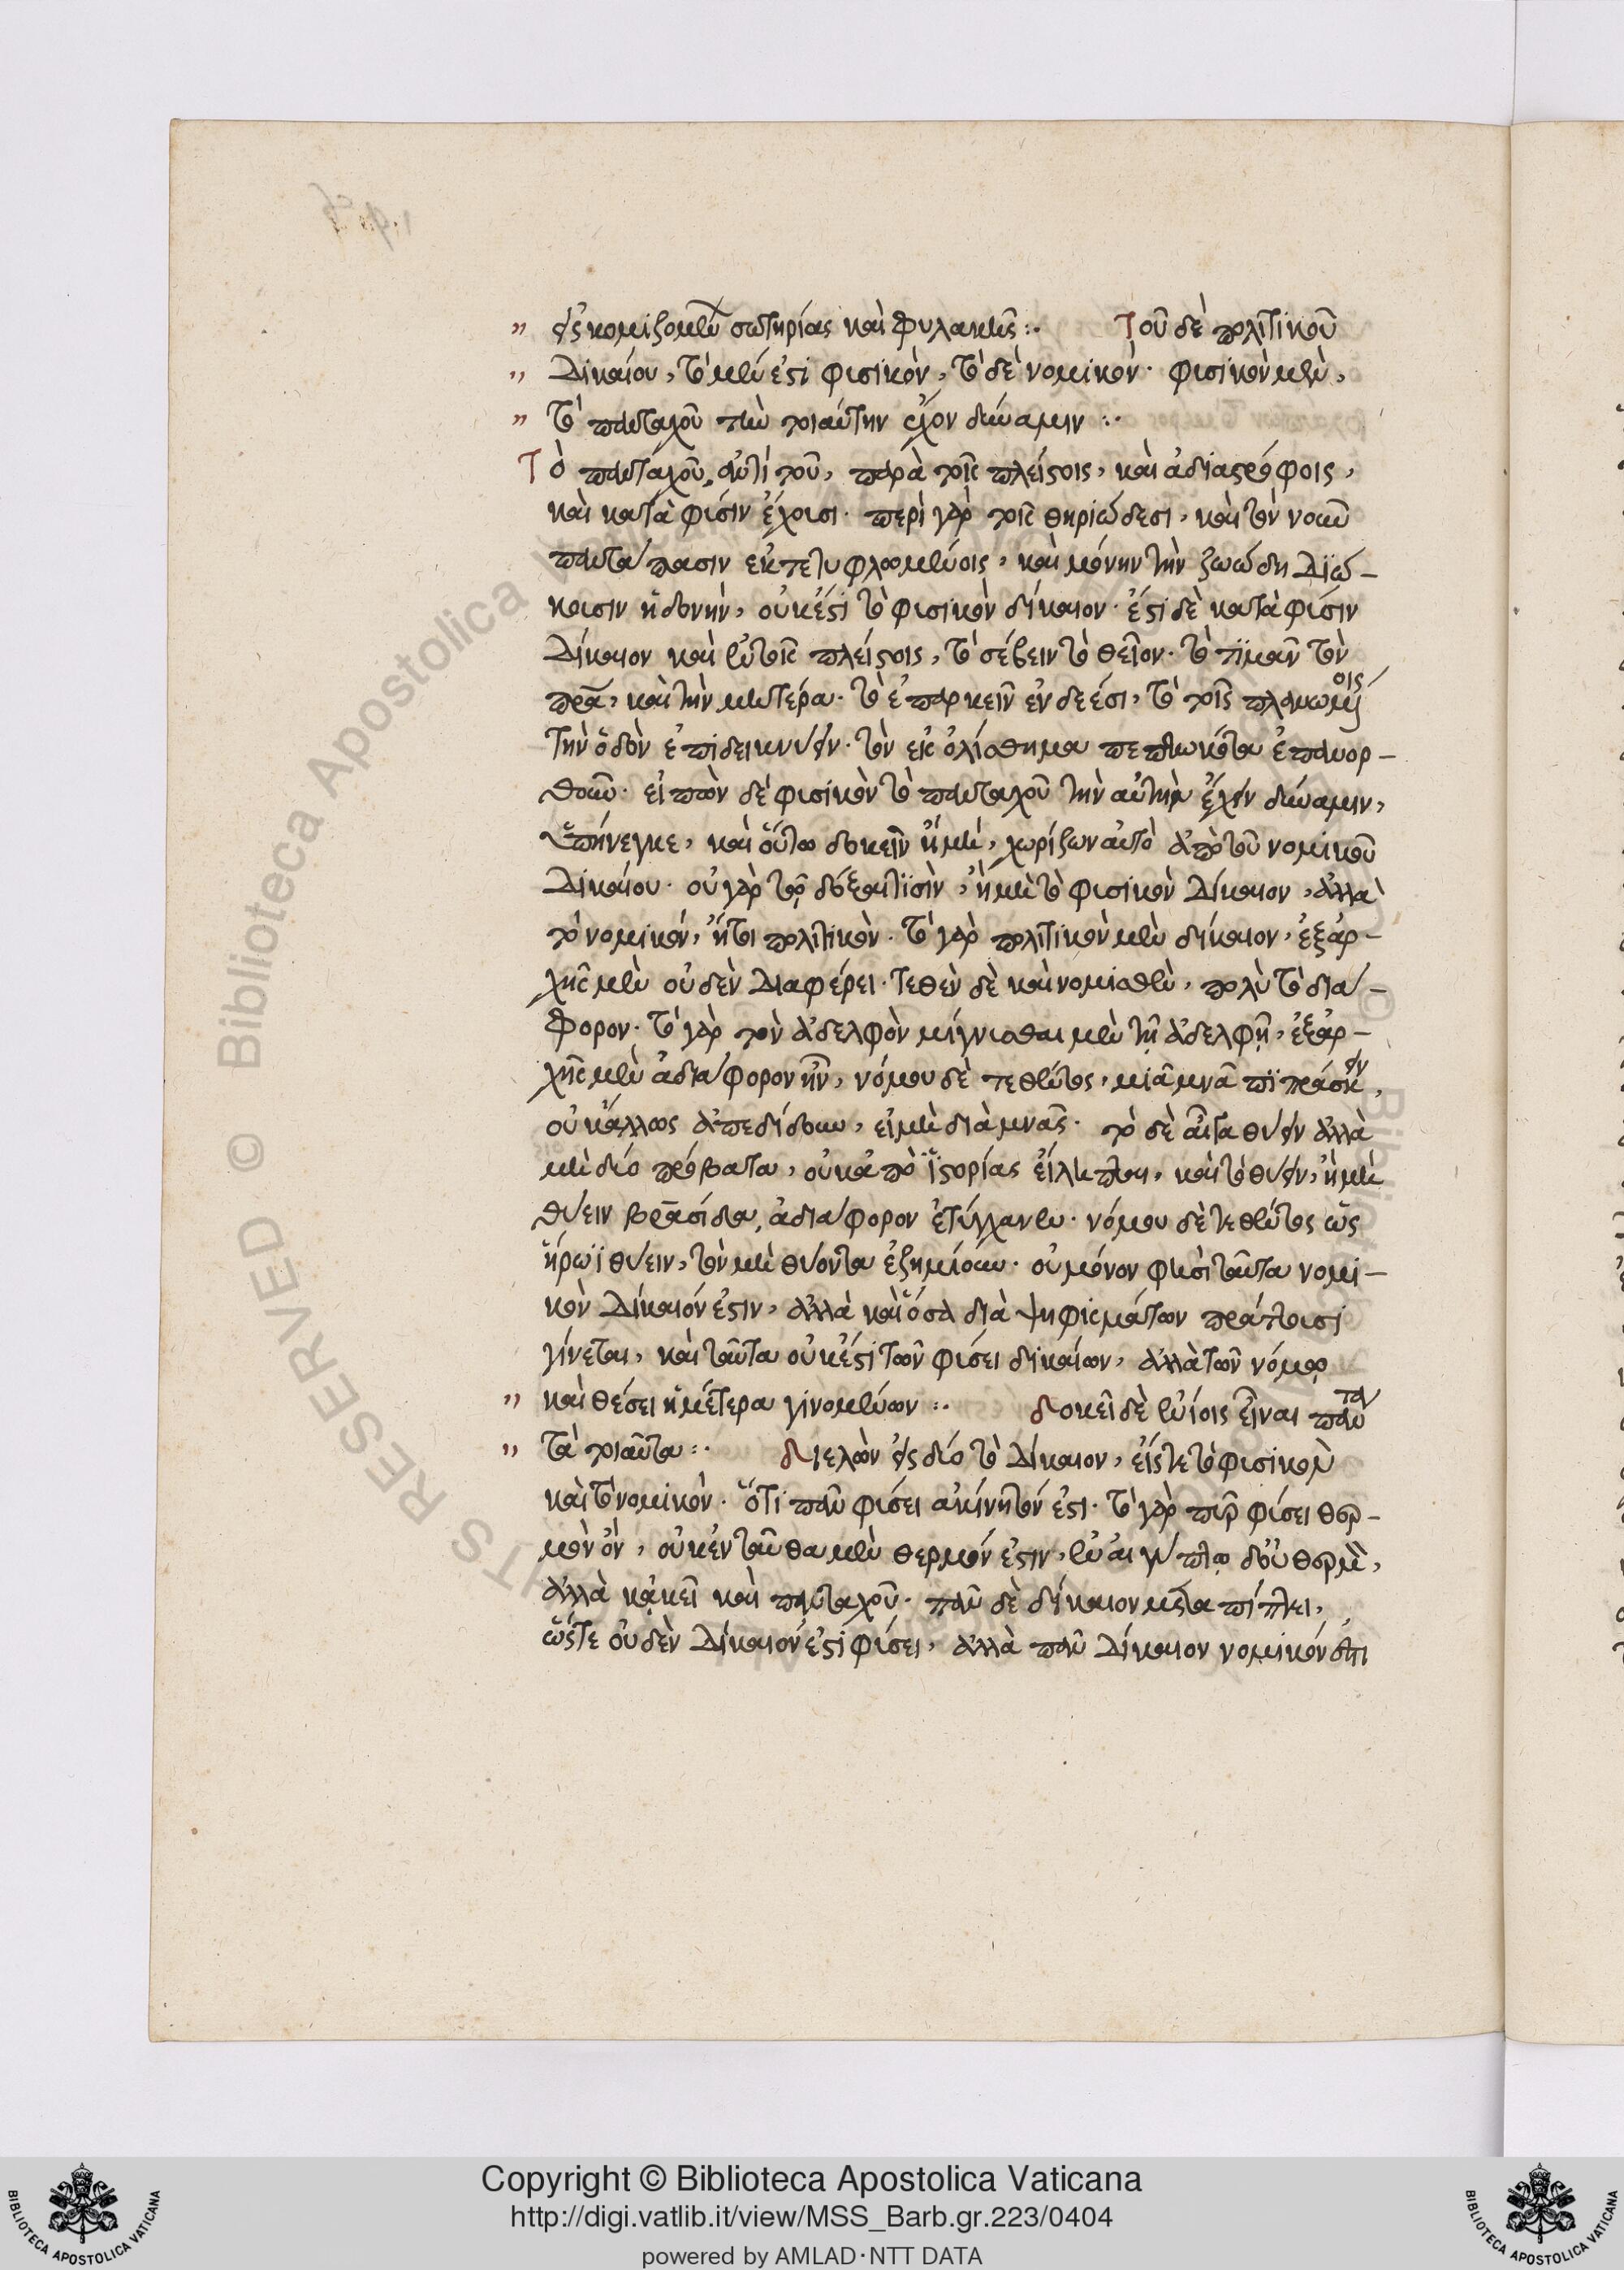 εἰσκομιζομένων σωτηρίας καὶ φυλακῆς :· Τοῦ δὲ πολιτικοῦ
Δικαίου, τὸ μέν ἐστι φυσικὸν, τὸ δὲ νομικόν· φυσικὸν μὲν,
τὸ πανταχοῦ τὴν τοιαύτην ἔχον δύναμιν :·
Τὸ πανταχοῦ, ἀντὶ τοῦ, παρὰ τοῖς πλείστοις, καὶ ἀδιαστρόφοις,
καὶ κατὰ φύσιν ἔχουσι· περὶ γὰρ τοῖς θηριώδεσι, καὶ τὸν νοῦν
παντάπασιν ἐκτετυφλωμένοις, καὶ μόνην τὴν ζωώδη Διώ-
κουσιν ἡδονὴν, οὐκέστι τὸ φυσικὸν δίκαιον· ἔστι δὲ κατὰ φύσιν
Δίκαιον καὶ ἐν τοῖς πλείστοις, τὸ σέβειν τὸ θεῖον· τὸ τιμᾶν τὸν
πρα, καὶ τὴν μητέρα· τὸ ἐπαρκεῖν ἐνδεέσι, τὸ τοῖς πλανωμένοις
τὴν ὁδὸν ἐπιδεικνύειν· τὸν εἰς ὀλίσθημα πεπτωκότα ἐπανορ-
θοῦν· εἰπὼν δὲ φυσικὸν τὸ πανταχοῦ τὴν αὐτὴν ἔχειν δύναμιν,
ἐπήνεγκε, καὶ οὕτω δοκεῖν ἢ μὴ, χωρίζων αὐτὸ ἀπὸ τοῦ νομικοῦ
Δικαίου· οὐ γὰρ τῷ δόξαι τισὶν, ἢ μὴ τὸ φυσικὸν Δίκαιον, ἀλλὰ
τὸ νομικόν, ἤτοι πολιτικὸν· τὸ γὰρ πολιτικὸν μὲν δίκαιον, ἐξαρ-
χῆς μὲν οὐδὲν Διαφέρει· τεθὲν δὲ καὶ νομισθὲν, πολὺ τὸ διά-
φορον· τὸ γὰρ τὸν ἀδελφὸν μίγνυσθαι μὲν τῇ ἀδελφῇ, ἐξαρ-
χῆς μὲν ἀδιάφορον ἦν, νόμου δὲ τεθέντος, μιᾶ μνᾶ πιπράσκειν,
οὐκάλλως ἀπεδίδουν, εἰμὴ διὰ μνᾶς· τὸ δὲ αἶγα θύειν ἀλλὰ
μὴ δύο πρόβατα, οὐκ ἀπὸ ἱστορίας εἴληπται, καὶ τὸ θύειν, ἢ μὴ
θύειν βρασίδα, ἀδιάφορον ἐτύγχανεν· νόμου δὲ τεθέντος ὡς
ἥρωϊ θύειν, τὸν μὴ θύοντα ἐξημίουν· οὐ μόνον φησὶ ταῦτα νομι-
κὸν Δίκαιόν ἐστιν, ἀλλὰ καὶ ὅσα διὰ ψηφισμάτων πράττουσι
γίνεται, καὶ ταῦτα οὐκέστι τῶν φύσει δικαίων, ἀλλὰ τῶν νόμῳ
καὶ θέσει ἡμέτερα γινομένων :· δοκεῖ δὲ ἐνίοις εἶναι πάντα
τὰ τοιαῦτα :· διελὼν εἰς δύο τὸ Δίκαιον, εἴς τε τὸ φυσικὸν
καὶ τὸ νομικόν· ὅτι πᾶν φύσει ἀκίνητόν ἐστι· τὸ γὰρ πῦρ φύσει θερ-
μὸν ὂν, οὐκ ἐνταῦθα μὲν θερμόν ἐστιν, ἐν αἰγύπτῳ δ' οὐ θερμὸ,
ἀλλὰ κἀκεῖ καὶ πανταχοῦ· πᾶν δὲ δίκαιον μεταπίπτει,
ὥστε οὐδὲν Δίκαιόν ἐστι φύσει, ἀλλὰ πᾶν Δίκαιον νομικόν ἐστι
Copyright © Biblioteca Apostolica Vaticana
http://digi.vatlib.it/view/MSS_Barb.gr.223/0404
powered by AMLAD·NTT DATA